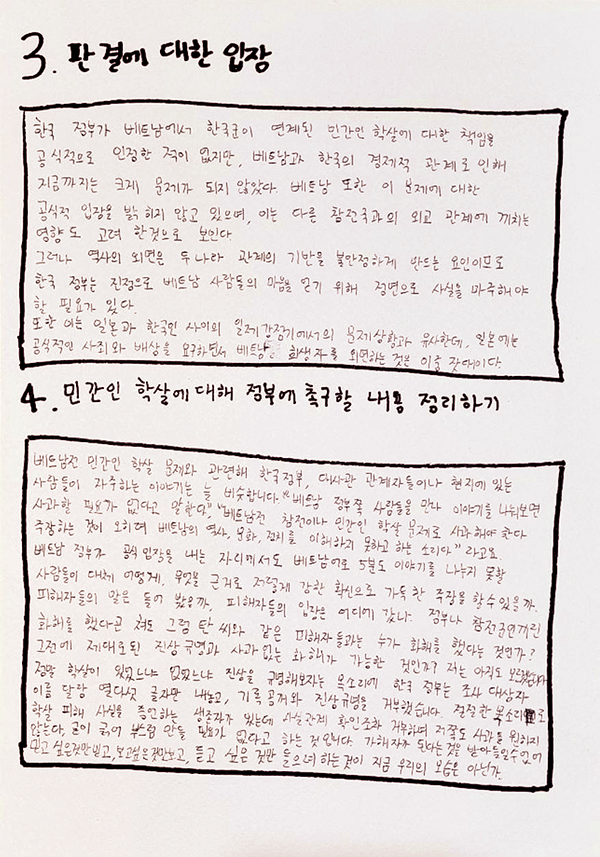 3. 판결에 대한 입장
한국 정부가 베트남에서 한국군이 연계된 민간인 학살에 대한 책임을
공식적으로 인정한 적이 없지만, 베트남과 한국의 경제적 관계로 인해
지금까지는 크게 문제가 되지 않았다. 베트남 또한 이 문제에 대한
공식적 입장을 밝히지 않고 있으며, 이는 다른 참전국과의 외교 관계에 끼치는
영향도 고려 한것으로 보인다.
그러나 역사의 외면은 두 나라 관계의 기반을 불안정하게 만드는 요인이므로
한국 정부는 진정으로 베트남 사람들의 마음을 얻기 위해 정면으로 사실을 마주해야
할 필요가 있다.
또한 이는 일본과 한국인 사이의 일제강점기에서의 문제상황과 유사한데, 일본에는
공식적인 사죄와 배상을 요구하면서 베트남 희생자를 외면하는 것은 이중 잣대이다.
4. 민간인 학살에 대해 정부에 촉구할 내용 정리하기
베트남전 민간인 학살 문제와 관련해 한국정부, 대사관 관계자들이나 현지에 있는
사람들이 자주하는 이야기는 늘 비슷합니다. "베트남 정부쪽 사람들을 만나 이야기를 나눠보면
사과할 필요가 없다고 말한다" "베트남전 참전이나 민간인 학살 문제로 사과해야 한다
주장하는 것이 오히려 베트남의 역사, 문화, 정치를 이해하지 못하고 하는 소리다" 라고요.
베트남 정부가 공식입장을 내는 자리에서도 베트남어로 5분도 이야기를 나누지 못할
사람들이 대체 어떻게, 무엇을 근거로 저렇게 강한 확신으로 가득 찬 주장을 할 수 있을까.
피해자들의 말은 들어 봤을까, 피해자들의 입장은 어디에 갔나. 정부나 참전군인끼린
화해를 했다고 쳐도 그럼 탄 씨와 같은 피해자들과는 누가 화해를 했다는 것인가?
그전에 제대로된 진상규명과 사과없는 화해가 가능한 것인가? 저는 아직도 모르겠습니다
정말 학살이 있었느냐 없었느냐 진상을 규명해보자는 목소리에 한국 정부는 조사 대상자
이름 달랑 열다섯 글자만 내놓고, 기록 공개와 진상규명을 거부했습니다. 절절한 목소리로
학살 피해 사실을 증언하는 생존자가 있는데 사실관계 확인조차 거부하며 저쪽도 사과를 원하지
않는다, 굳이 긁어 부스럼 만들 필요가 없다고 하는 것입니다. 가해자가 된다는 것을 받아들일수없어
믿고 싶은것만 믿고, 보고싶은것만보고, 듣고 싶은 것만 들으려 하는 것이 지금 우리의 모습은 아닌가.